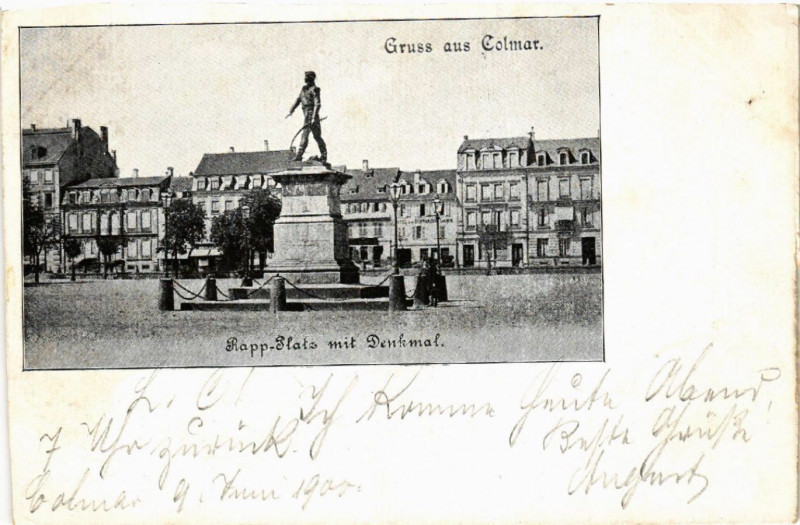 Gruss aus Colmar.
Rapp-Platz mit Denkmal.
L. C! Ich komme heute Abend,
7 Uhr zurück. Beste Grüße
Colmar 9. Juni 1900. August